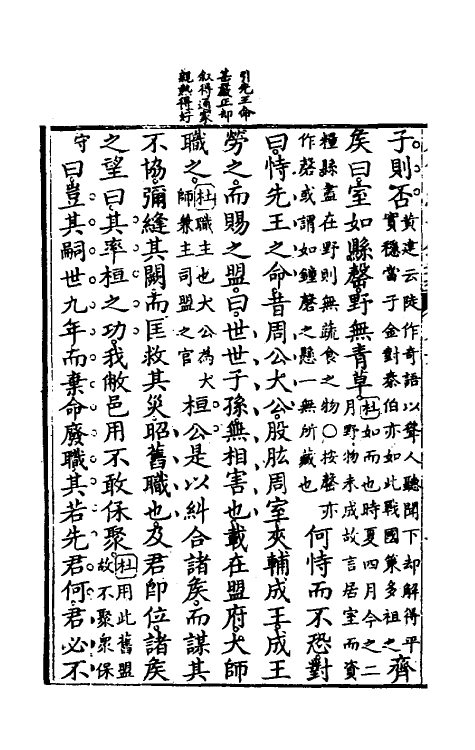 引先王命
甚嚴正却
叙得通家
親熱得好
子則否黄建云陡作奇語以聳人聽聞下却解得平實穩當子金對秦伯亦如此戰國策多祖之齊
矦曰室如縣磬野無青草杜如而也時夏四月今之二月野物未成故言居室而資
糧縣盡在野則無蔬食之物○按磬亦作罄或謂如鐘磬之懸一無所藏也何恃而不恐對
曰恃先王之命昔周公大公股肱周室夾輔成王成王
勞之而賜之盟曰世世子孫無相害也載在盟府大師
職之杜職主也大公為大師兼主司盟之官桓公是以糾合諸矦而謀其
不協彌縫其闕而匡救其災昭舊職也及君卽位諸矦
之望曰其率桓之功我敝邑用不敢保聚杜用此舊盟故不聚衆保
守曰豈其嗣世九年而棄命廢職其若先君何君必不